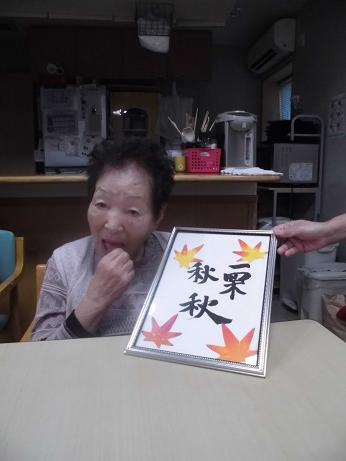 栗
秋
秋